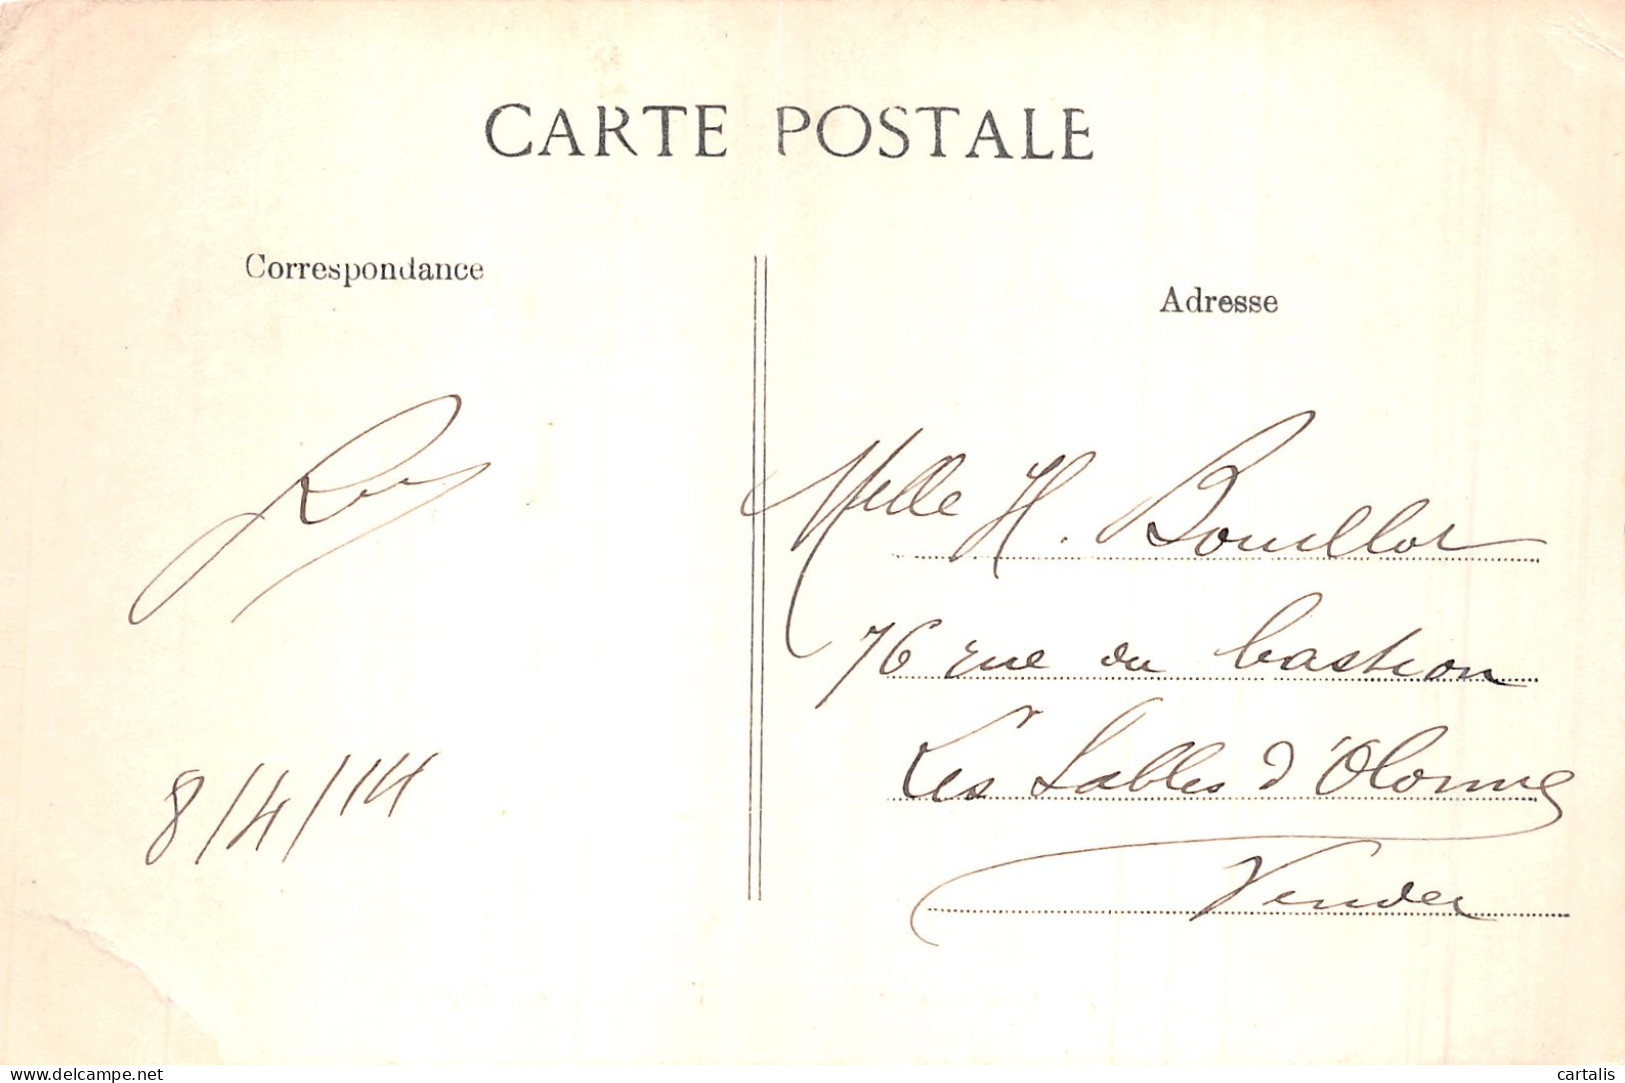 CARTE POSTALE
Correspondance
8/4/14
Adresse
Melle H. Bouillot
76 rue du bastion
Les Sables d'Olonne
Vendée
www.delcampe.net
cartalis